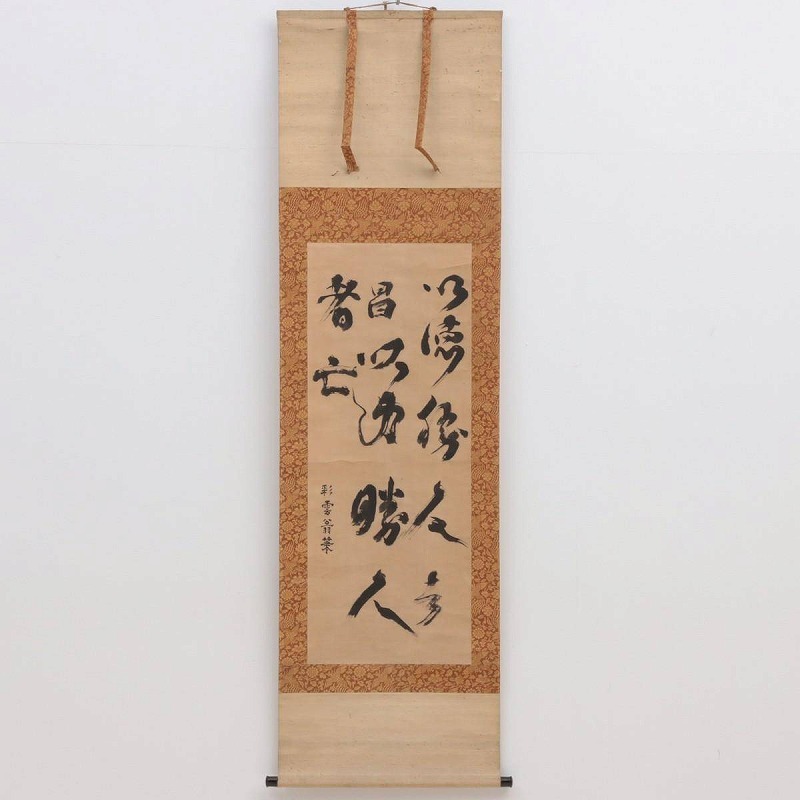 以徳勝人者
昌以力勝人
者亡
彩雲翁